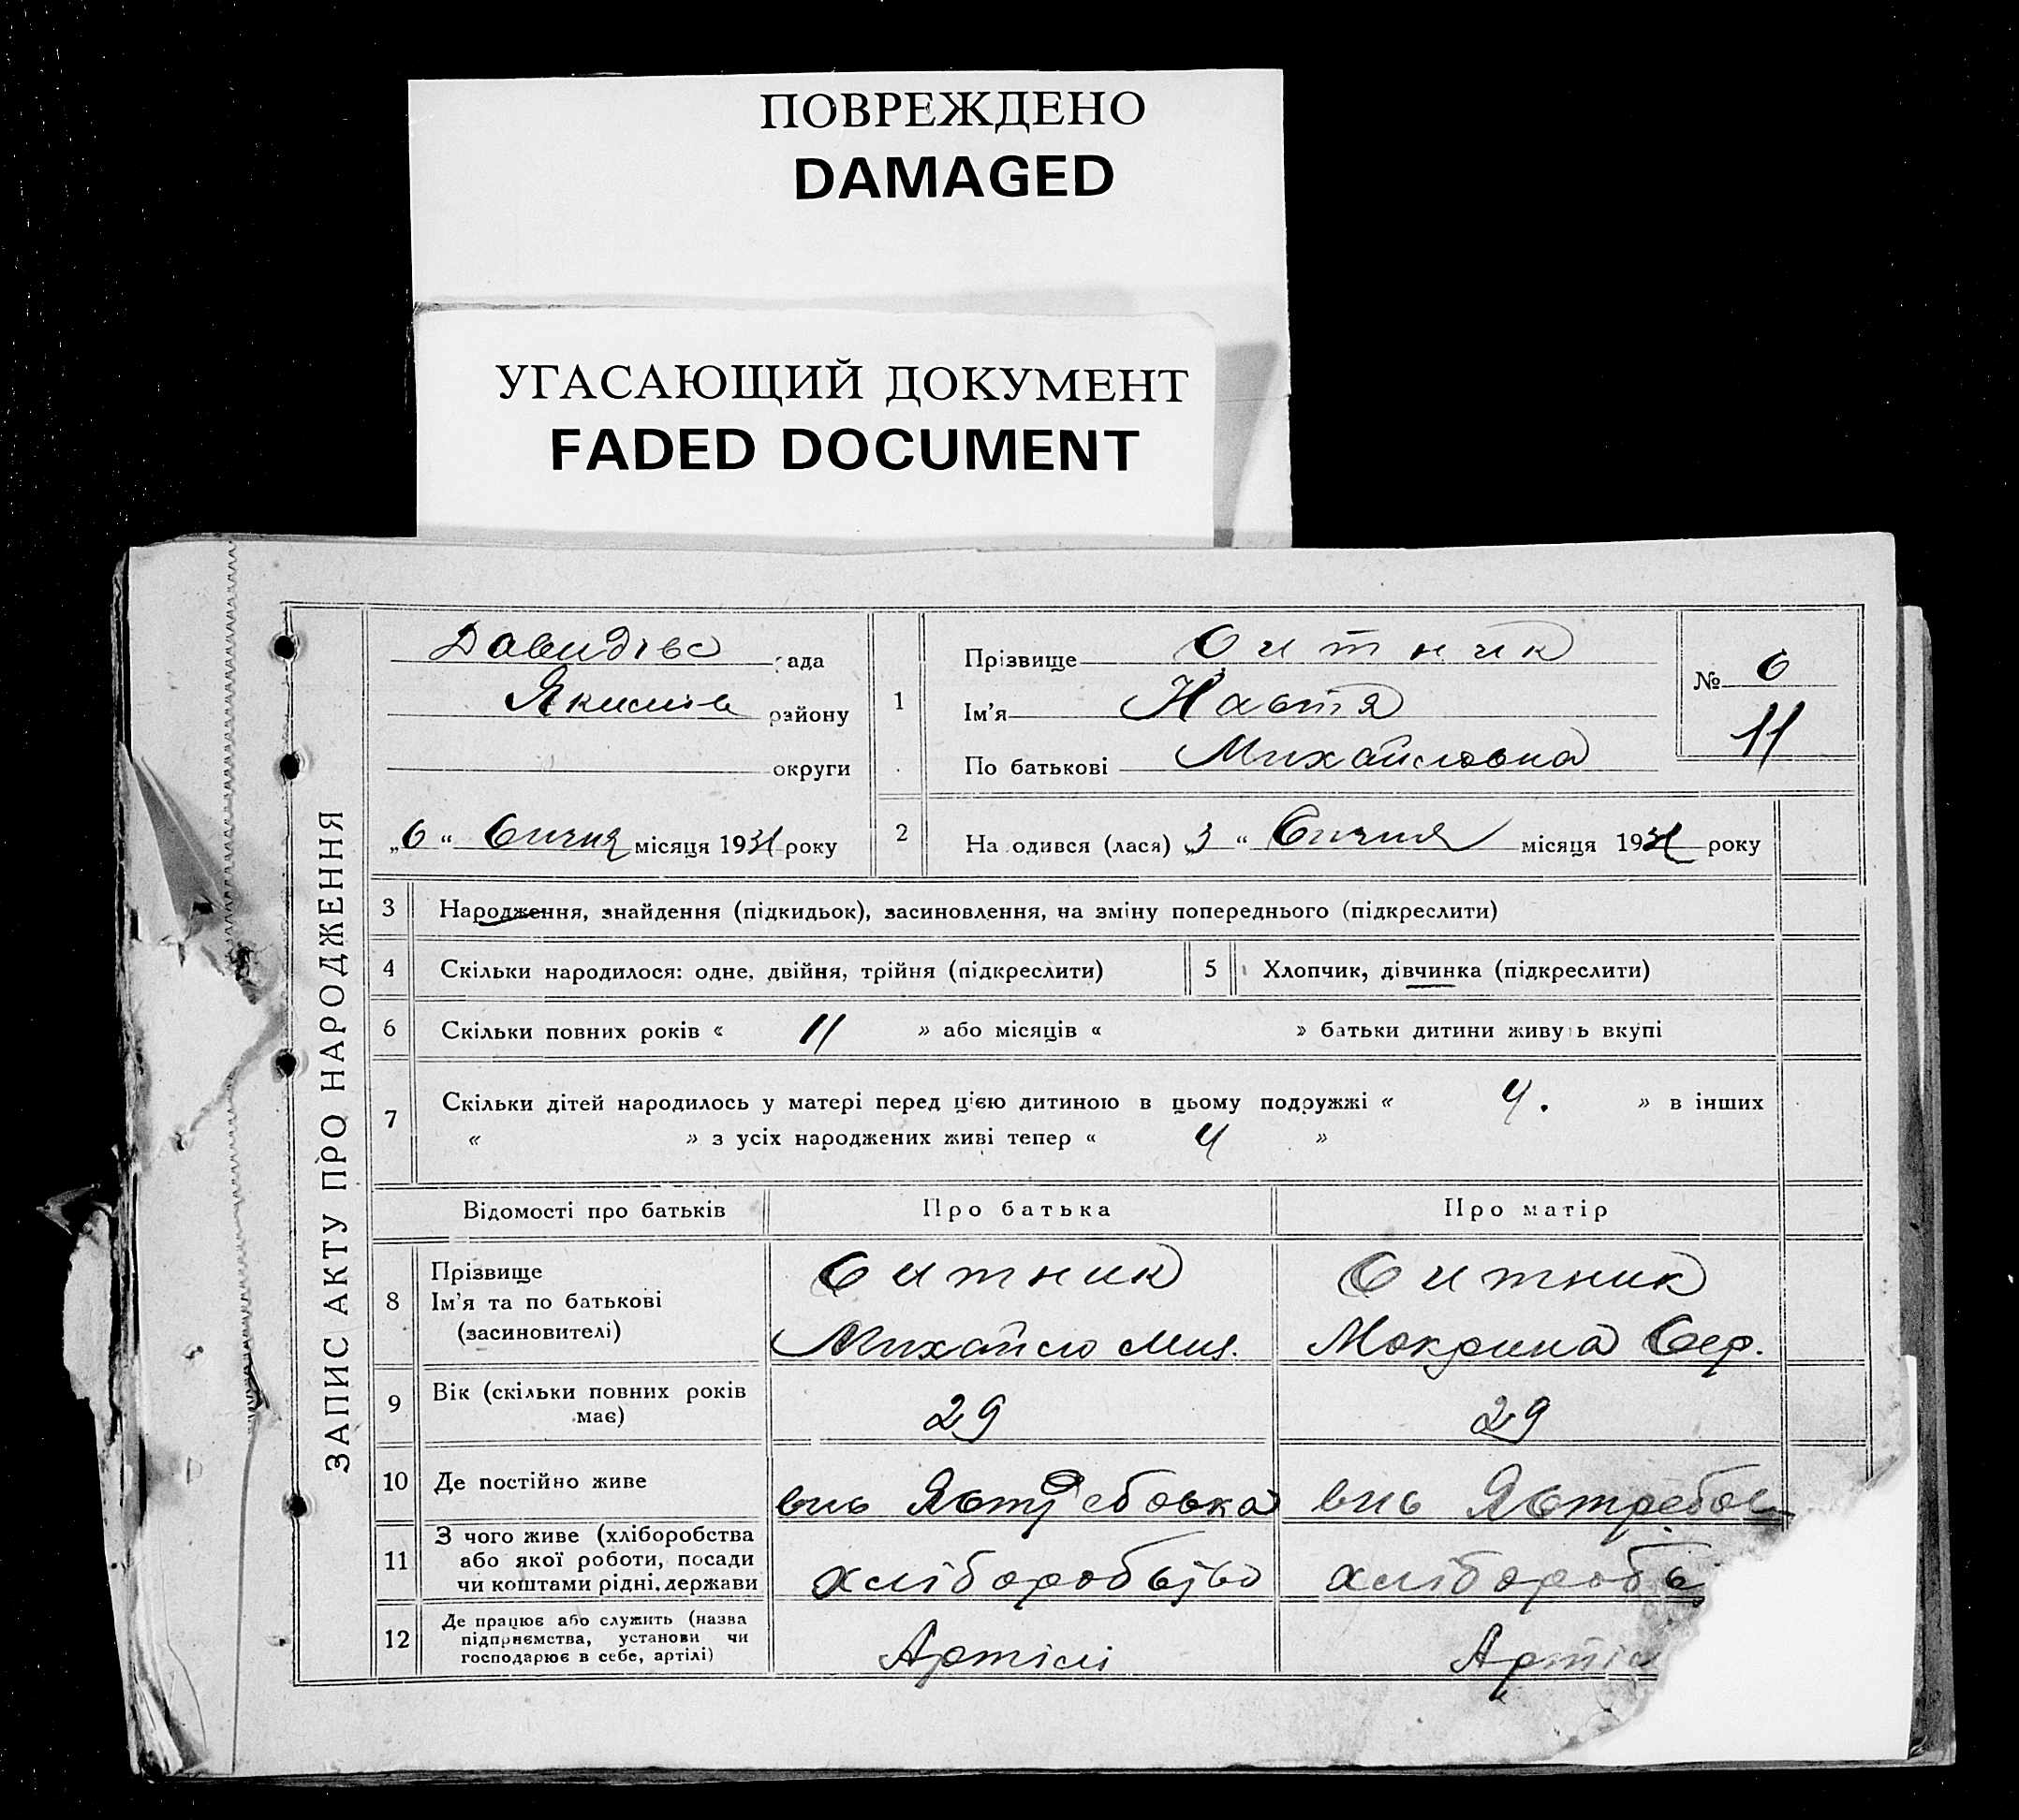 ПОВРЕЖДЕНО
DAMAGED
УГАСАЮЩИЙ ДОКУМЕНТ
FADED DOCUMENT
ЗАПИС АКТУ ПРО НАРОДЖЕННЯ
Давидівс рада
району
округи
„6“ Січня місяця 1931 року
1
Прізвище Ситник
Ім’я Настя
По батькові Михайловна
№ 6
11
2 Народився (лася) „3“ Січня місяця 1931 року
3 Народження, знайдення (підкидьок), засиновлення, на зміну попереднього (підкреслити)
4 Скільки народилося: одне, двійня, трійня (підкреслити)
5 Хлопчик, дівчинка (підкреслити)
6 Скільки повних років « 11 » або місяців « » батьки дитини живуть вкупі
7 Скільки дітей народилось у матері перед цією дитиною в цьому подружжі « 4. » в інших
« » з усіх народжених живі тепер « 4 »
Відомості про батьків Про батька Про матір
8 Прізвище
Ім’я та по батькові
(засиновителі)
Ситник
Михайло Мих.
Ситник
Мокрина Сер.
9 Вік (скільки повних років
має)
29 29
10 Де постійно живе
Ястребовка
Ястребов
11 З чого живе (хліборобства
або якої роботи, посади
чи коштами рідні, держави
хліборобство
хлібороб
12 Де працює або служить (назва
підприємства, установи чи
господарює в себе, артілі)
Артілі
Артіл